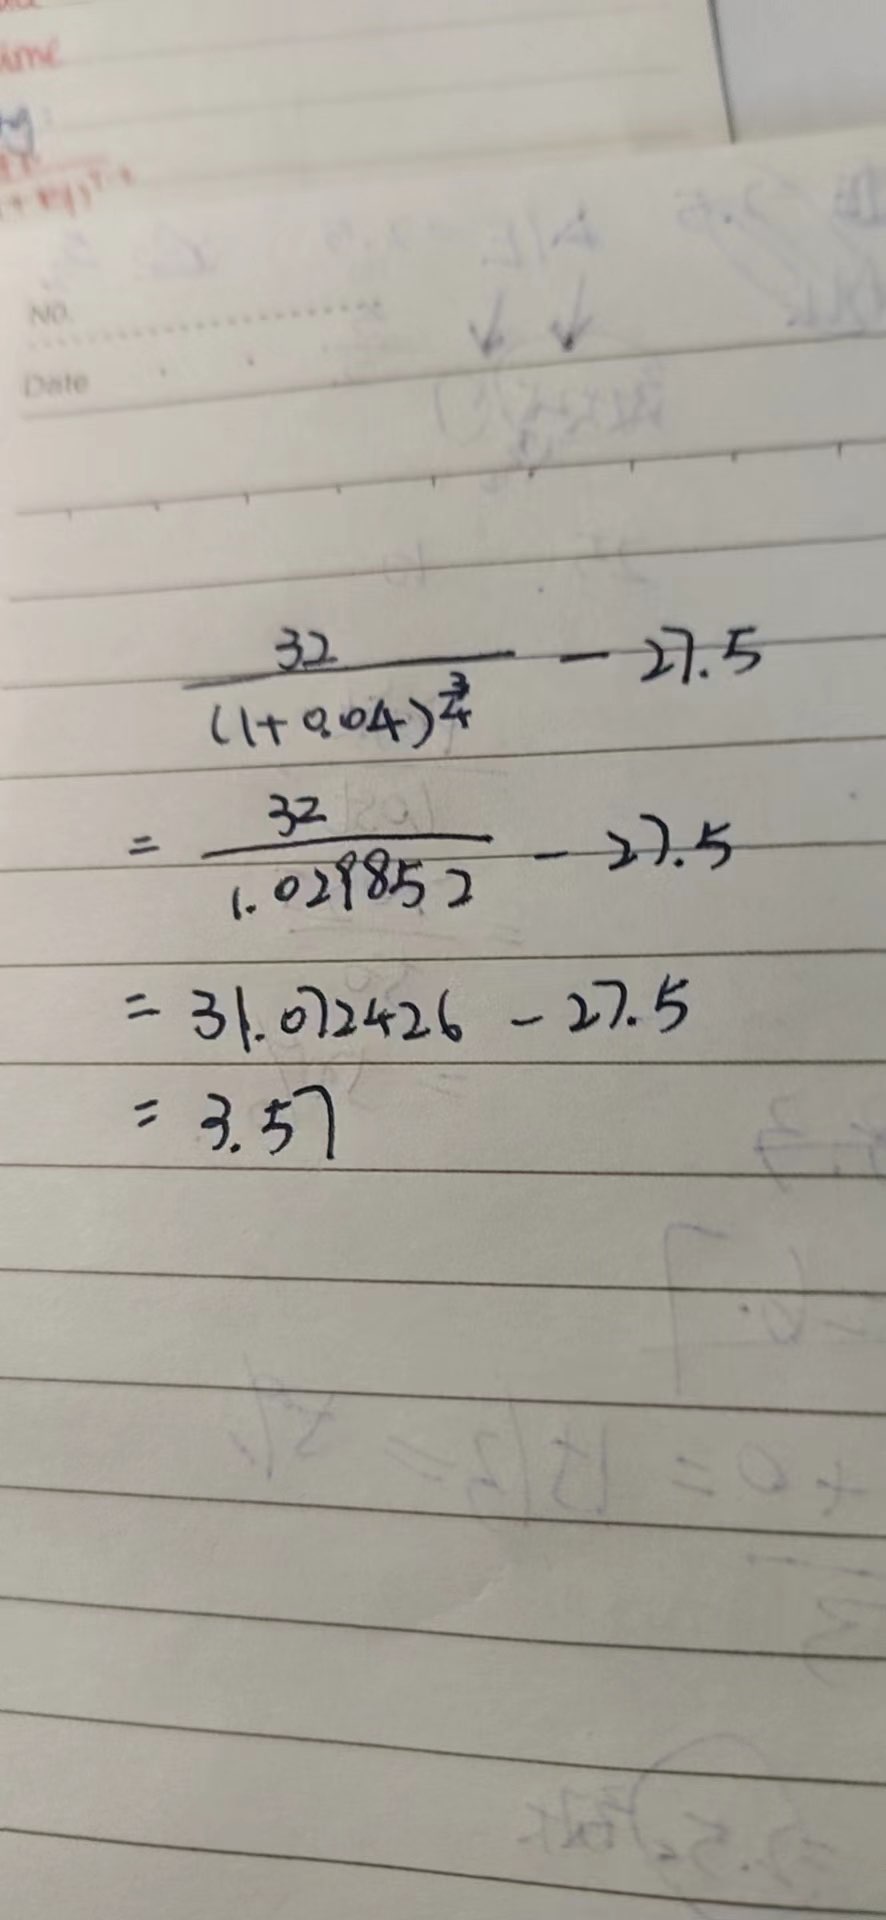 ime
No.
Date
32
(1+0.04)^(3/4) - 27.5
= 32
1.029852 - 27.5
= 31.072426 - 27.5
= 3.57